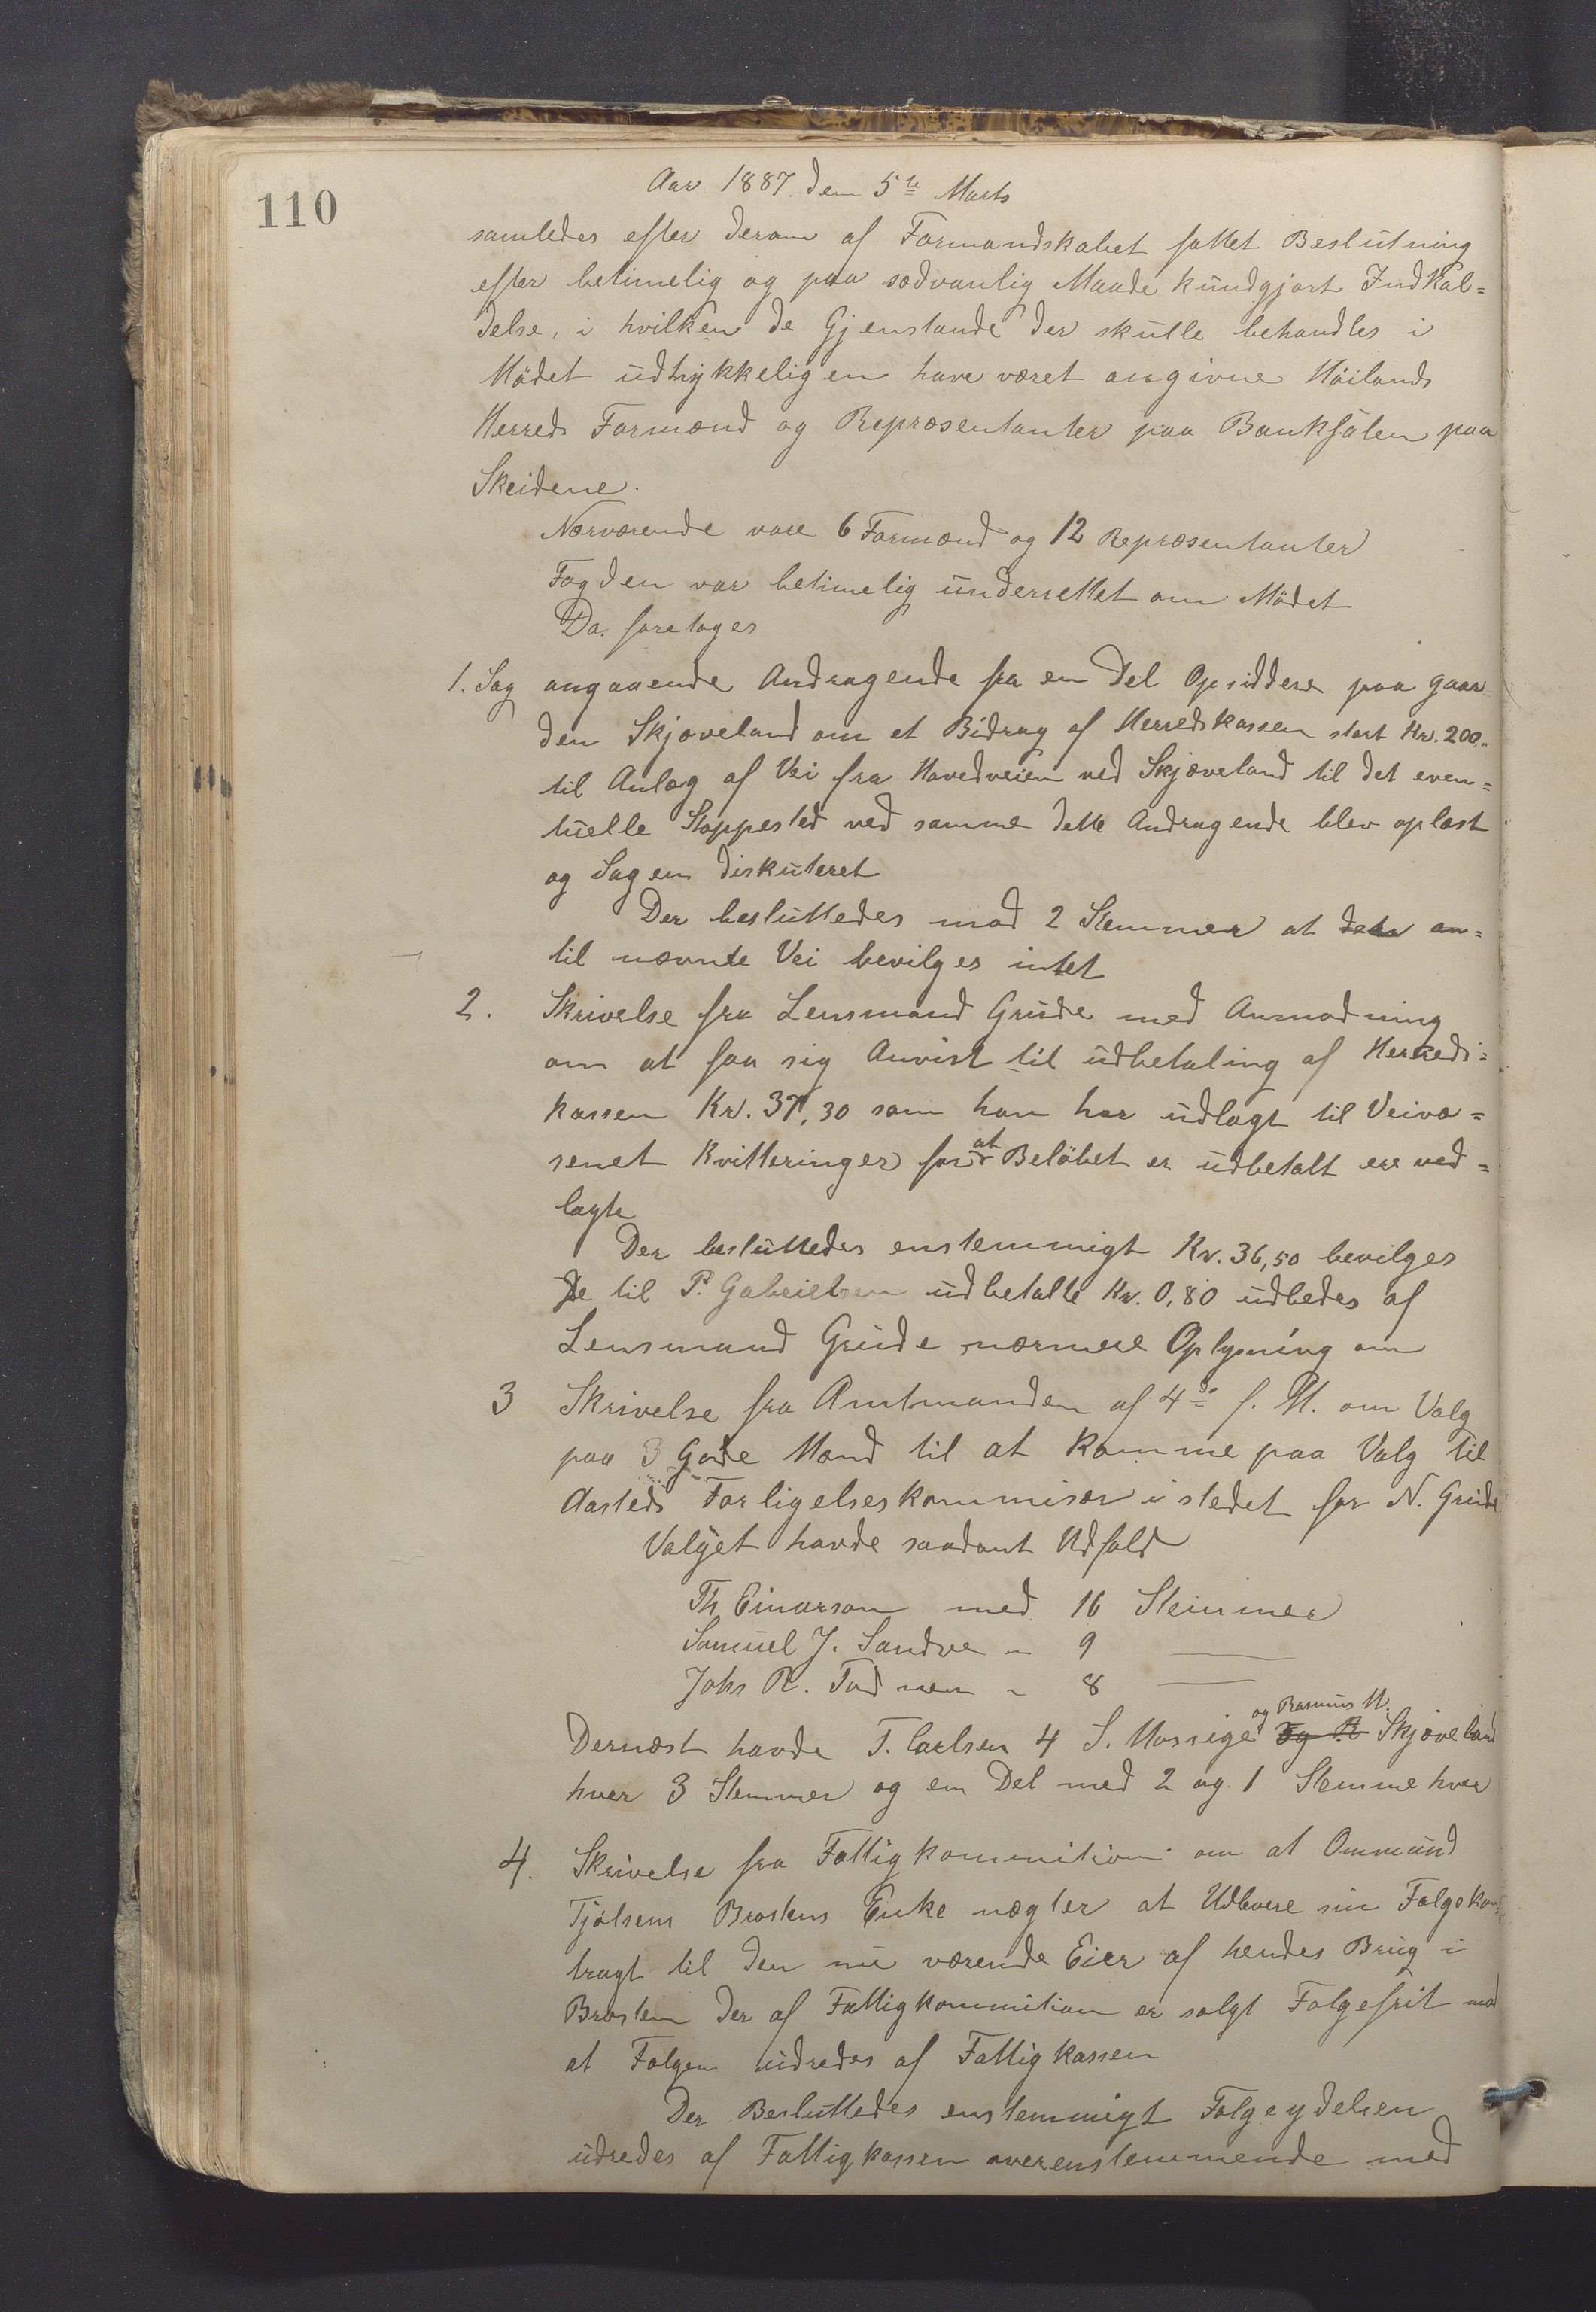 110
Aar 1887 den 5te Marts
samledes efter derom af Formandskabet fattet Beslutning
efter betimelig og paa sædvanlig Maade kundgjort Indkal=
delse, i hvilken de Gjenstande der skulle behandles i
Mödet udtrykkeligen have været angivne Höilands
Herreds Formænd og Repræsentanter paa Banksalen paa
Skeidene.
Nærværende vare 6 Formænd og 12 Repræsentanter
Fogden var betimelig underrettet om Mödet
Da foretoges
1. Sag angaaende Andragende fra en Del Opsiddere paa gaar
den Skjæveland om et Bidrag af Herredskassen stort Kr. 200"
til Anlæg af Vei fra Hovedveien ved Skjæveland til det even=
tuelle Stoppested ved samme dette Andragende blev oplæst
og Sagen diskuteret
Der besluttedes mod 2 Stemmer at an=
til nævnte Vei bevilges intet
2. Skrivelse fra Lensmand Grude med Anmodning
om at faa sig Anvist til udbetaling af Herreds=
kassen Kr. 37,30 som han har udlagt til Veivæ=
senet Kvitteringer for at Belöbet er udbetalt ere ved=
lagte
Der besluttedes enstemmigt Kr. 36,50 bevilges
De til P. Gabrielsen udbetalte Kr. 0,80 udbedes af
Lensmand Grude nærmere Oplysning om
3 Skrivelse fra Amtmanden af 4de f. M. om Valg
paa 3 Gode Mænd til at komme paa Valg til
Aasteds Forligelseskommisær i stedet for N. Grude
Valget havde saadant Udfald
Th Einarson med 16 Stemmer
Samuel J. Sandve " 9 —
Johs R. Tadnem " 8 —
Dernæst havde T. Carlsen 4 S. Hossige og Rasmus H. Og R Skjæveland
hver 3 Stemmer og en Del med 2 og 1 Stemme hver
4. Skrivelse fra Fattigkommition om at Ommund
Tjølsens Brostens Enke nægter at Udlevere sin Folgekon
tragt til den nu værende Eier af hendes Brug i
Brosten der af Fattigkommition er solgt Folgefrit mod
at Folgen udredes af Fattigkassen
Der Besluttedes enstemmigt Folgeydelsen
udredes af Fattigkassen overenstemmende med